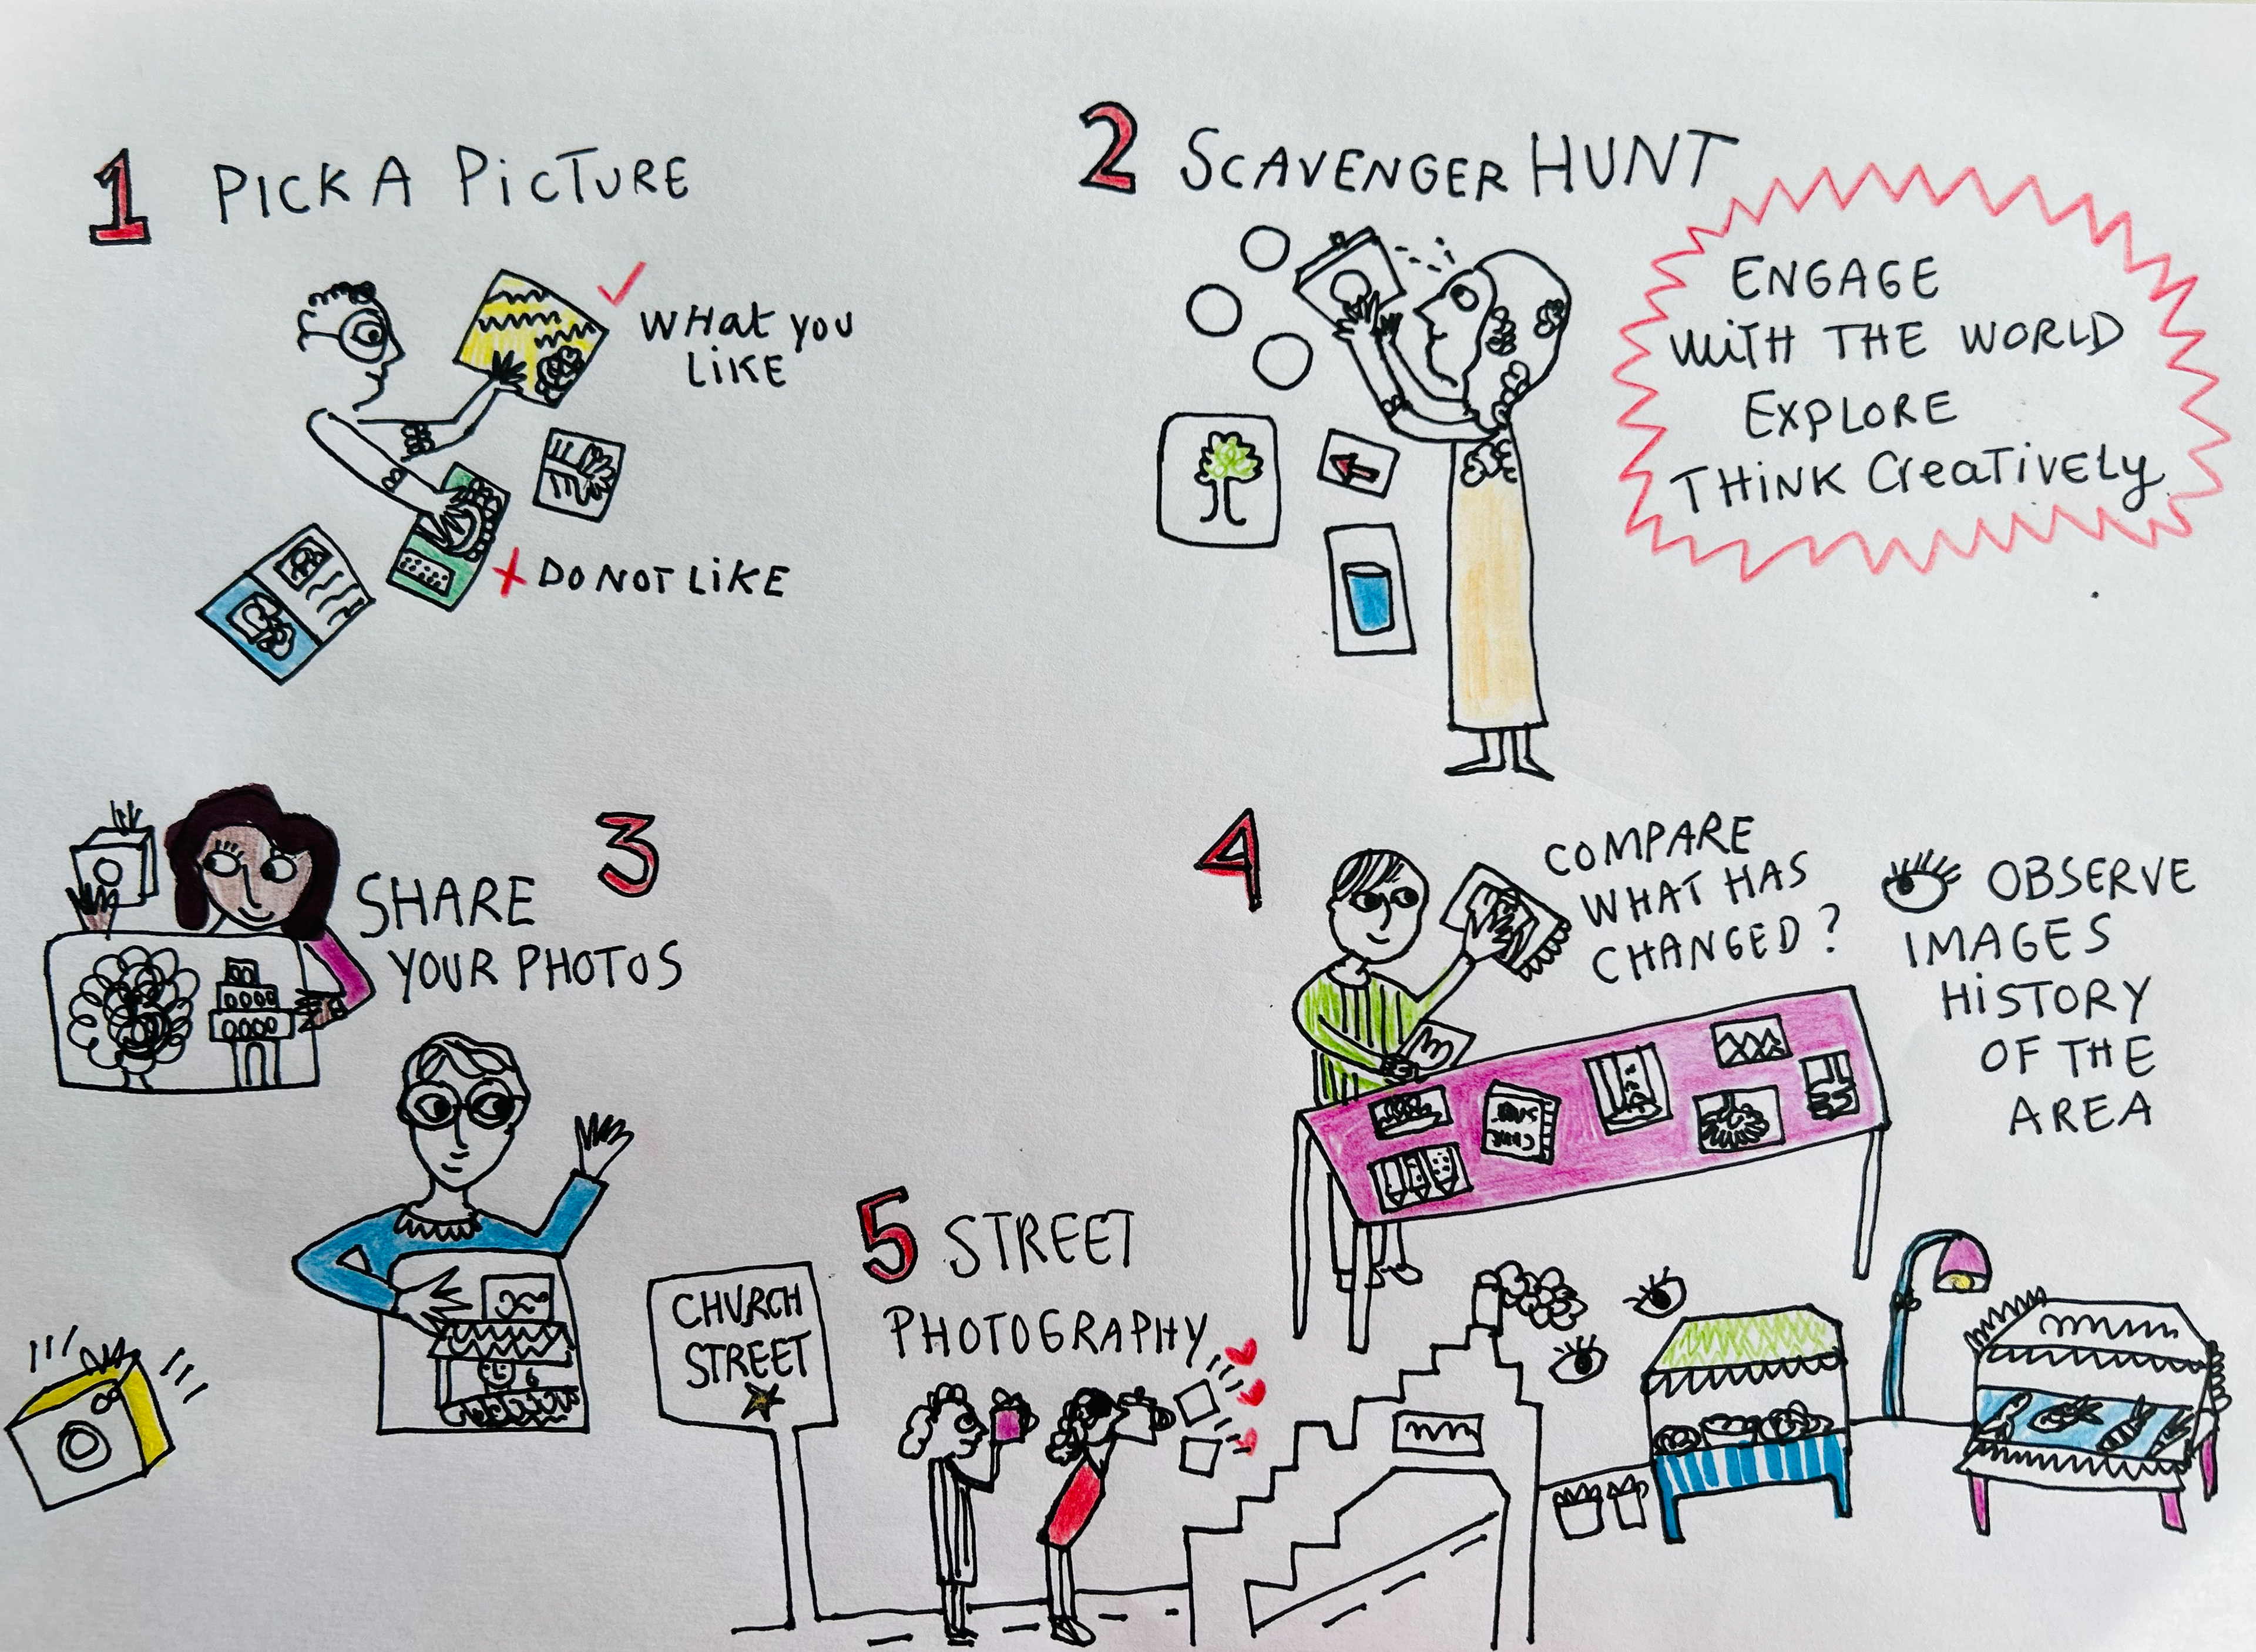 1 PICK A PiCTURE
✓ WHat you
LiKE
x DO NOT LiKE
2 SCAVENGER HUNT
ENGAGE
WiTH THE WORLD
EXPLORE
THiNK CreaTiveLy
3
SHARE
YOUR PHOTOS
4
COMPARE
WHAT HAS
CHANGED?
OBSERVE
IMAGES
HiSTORY
OF THE
AREA
5 STREET
PHOTOGRAPHY
CHURCH
STREET